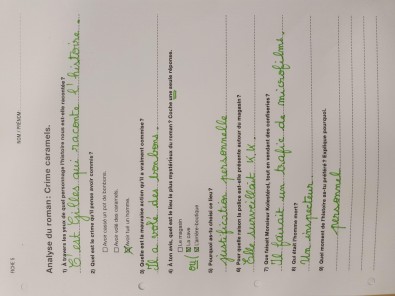 FICHE 5
NOM / PRÉNOM
Analyse du roman: Crime caramels.
1) À travers les yeux de quel personnage l'histoire nous est-elle racontée?
C'est Gilles qui raconte l'histoire.
2) Quel est le crime qu'il pense avoir commis?
Avoir cassé un pot de bonbons.
Avoir volé des caramels.
Avoir tué un homme.
3) Quelle est la mauvaise action qu'il a vraiment commise?
Il a volé des bonbons.
4) À ton avis, quel est le lieu le plus mystérieux du roman? Coche une seule réponse.
Le magasin
ou La cave
L'arrière-boutique
5) Pourquoi as-tu choisi ce lieu?
justification personnelle
6) Pour quelle raison la police est-elle présente autour du magasin?
Elle surveillait K.K.
7) Que faisait Monsieur Kolersbrol, tout en vendant des confiseries?
Il faisait un trafic de microfilms.
8) Qui était l'homme mort?
Un inspecteur.
9) Quel moment de l'histoire as-tu préféré? Explique pourquoi.
personnel